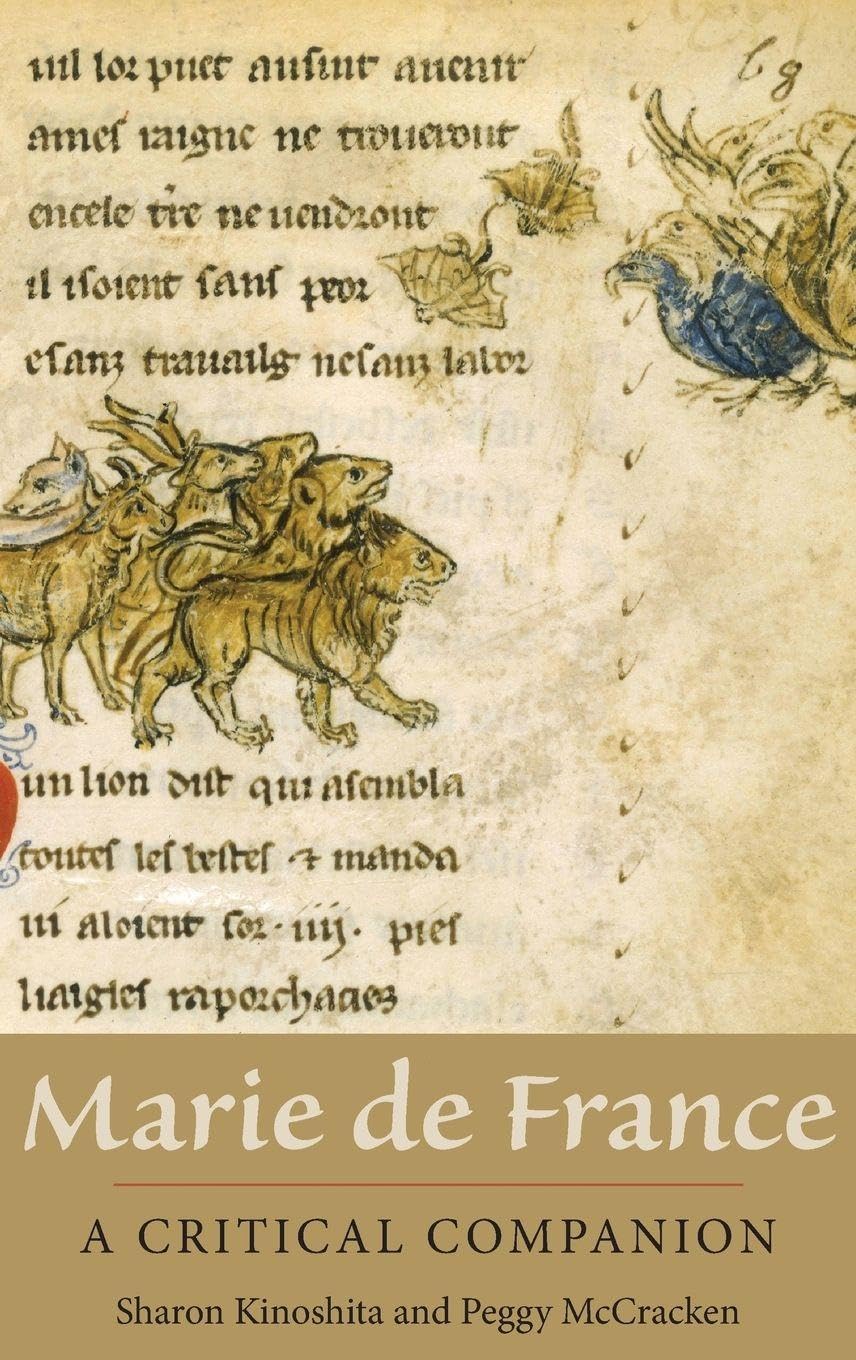 uil lor puet ausint auenir
ames raigne ne trouerout
encele tre ne uendront
il isoient sans peor
esanz trauailg nesanz labor
b g
un lion dist qui asembla
toutes les bestes ⁊ manda
ui aloient sor · iiij · pies
raporchacies
Marie de France
A CRITICAL COMPANION
Sharon Kinoshita and Peggy McCracken